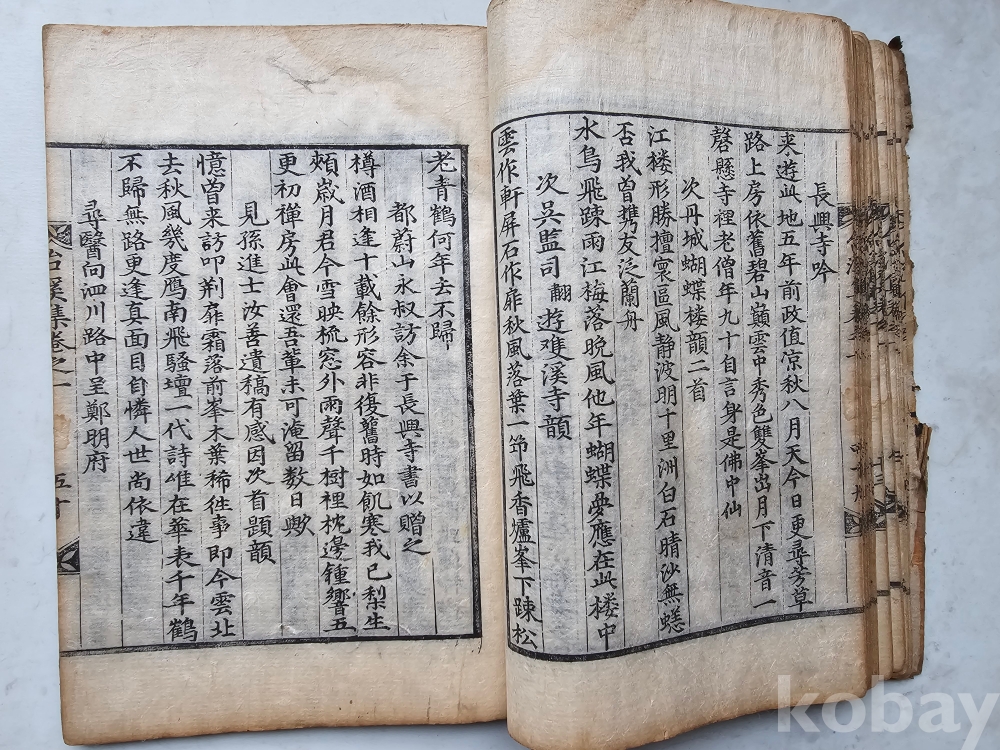 長興寺吟
夾遊此地五年前政值凉秋八月天今日更尋芳草
路上房依舊碧山巓雲中秀色雙峯出月下清音一
磬懸寺裡老僧年九十自言身是佛中仙
次丹城蝴蝶樓韻二首
江楼形勝擅寰區風静波明千里洲白石晴沙無蟋
否我曾携友泛蘭舟
水鳥飛踈雨江梅落晚風他年蝴蝶夢應在此楼中
次吳監司翻遊雙溪寺韻
雲作軒屏石作扉秋風落葉一笻飛香爐峯下踈松
老青鶴何年去不歸
都蔚山永叔訪余于長興寺書以贈之
樽酒相逢十載餘形容非復舊時如飢寒我已梨生
頰歲月君今雪映梳窓外雨聲千樹裡枕邊鍾響五
更初禪房此會還吾輩未可淹留数日歟
見孫進士汝善遺稿有感因次首題韻
憶曾来訪叩荆扉霜落前峯木葉稀徃事即今雲北
去秋風幾度鴈南飛騷壇一代詩惟在華表千年鶴
不歸無路更逢真面目自憐人世尚依違
尋醫向泗川路中呈鄭明府
溪集卷之一
kobay